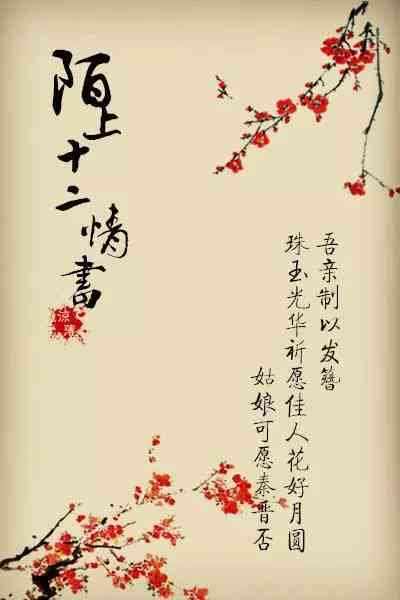 陌上十二情书
吾亲制以发簪
珠玉光华祈愿佳人花好月圆
姑娘可愿秦晋否